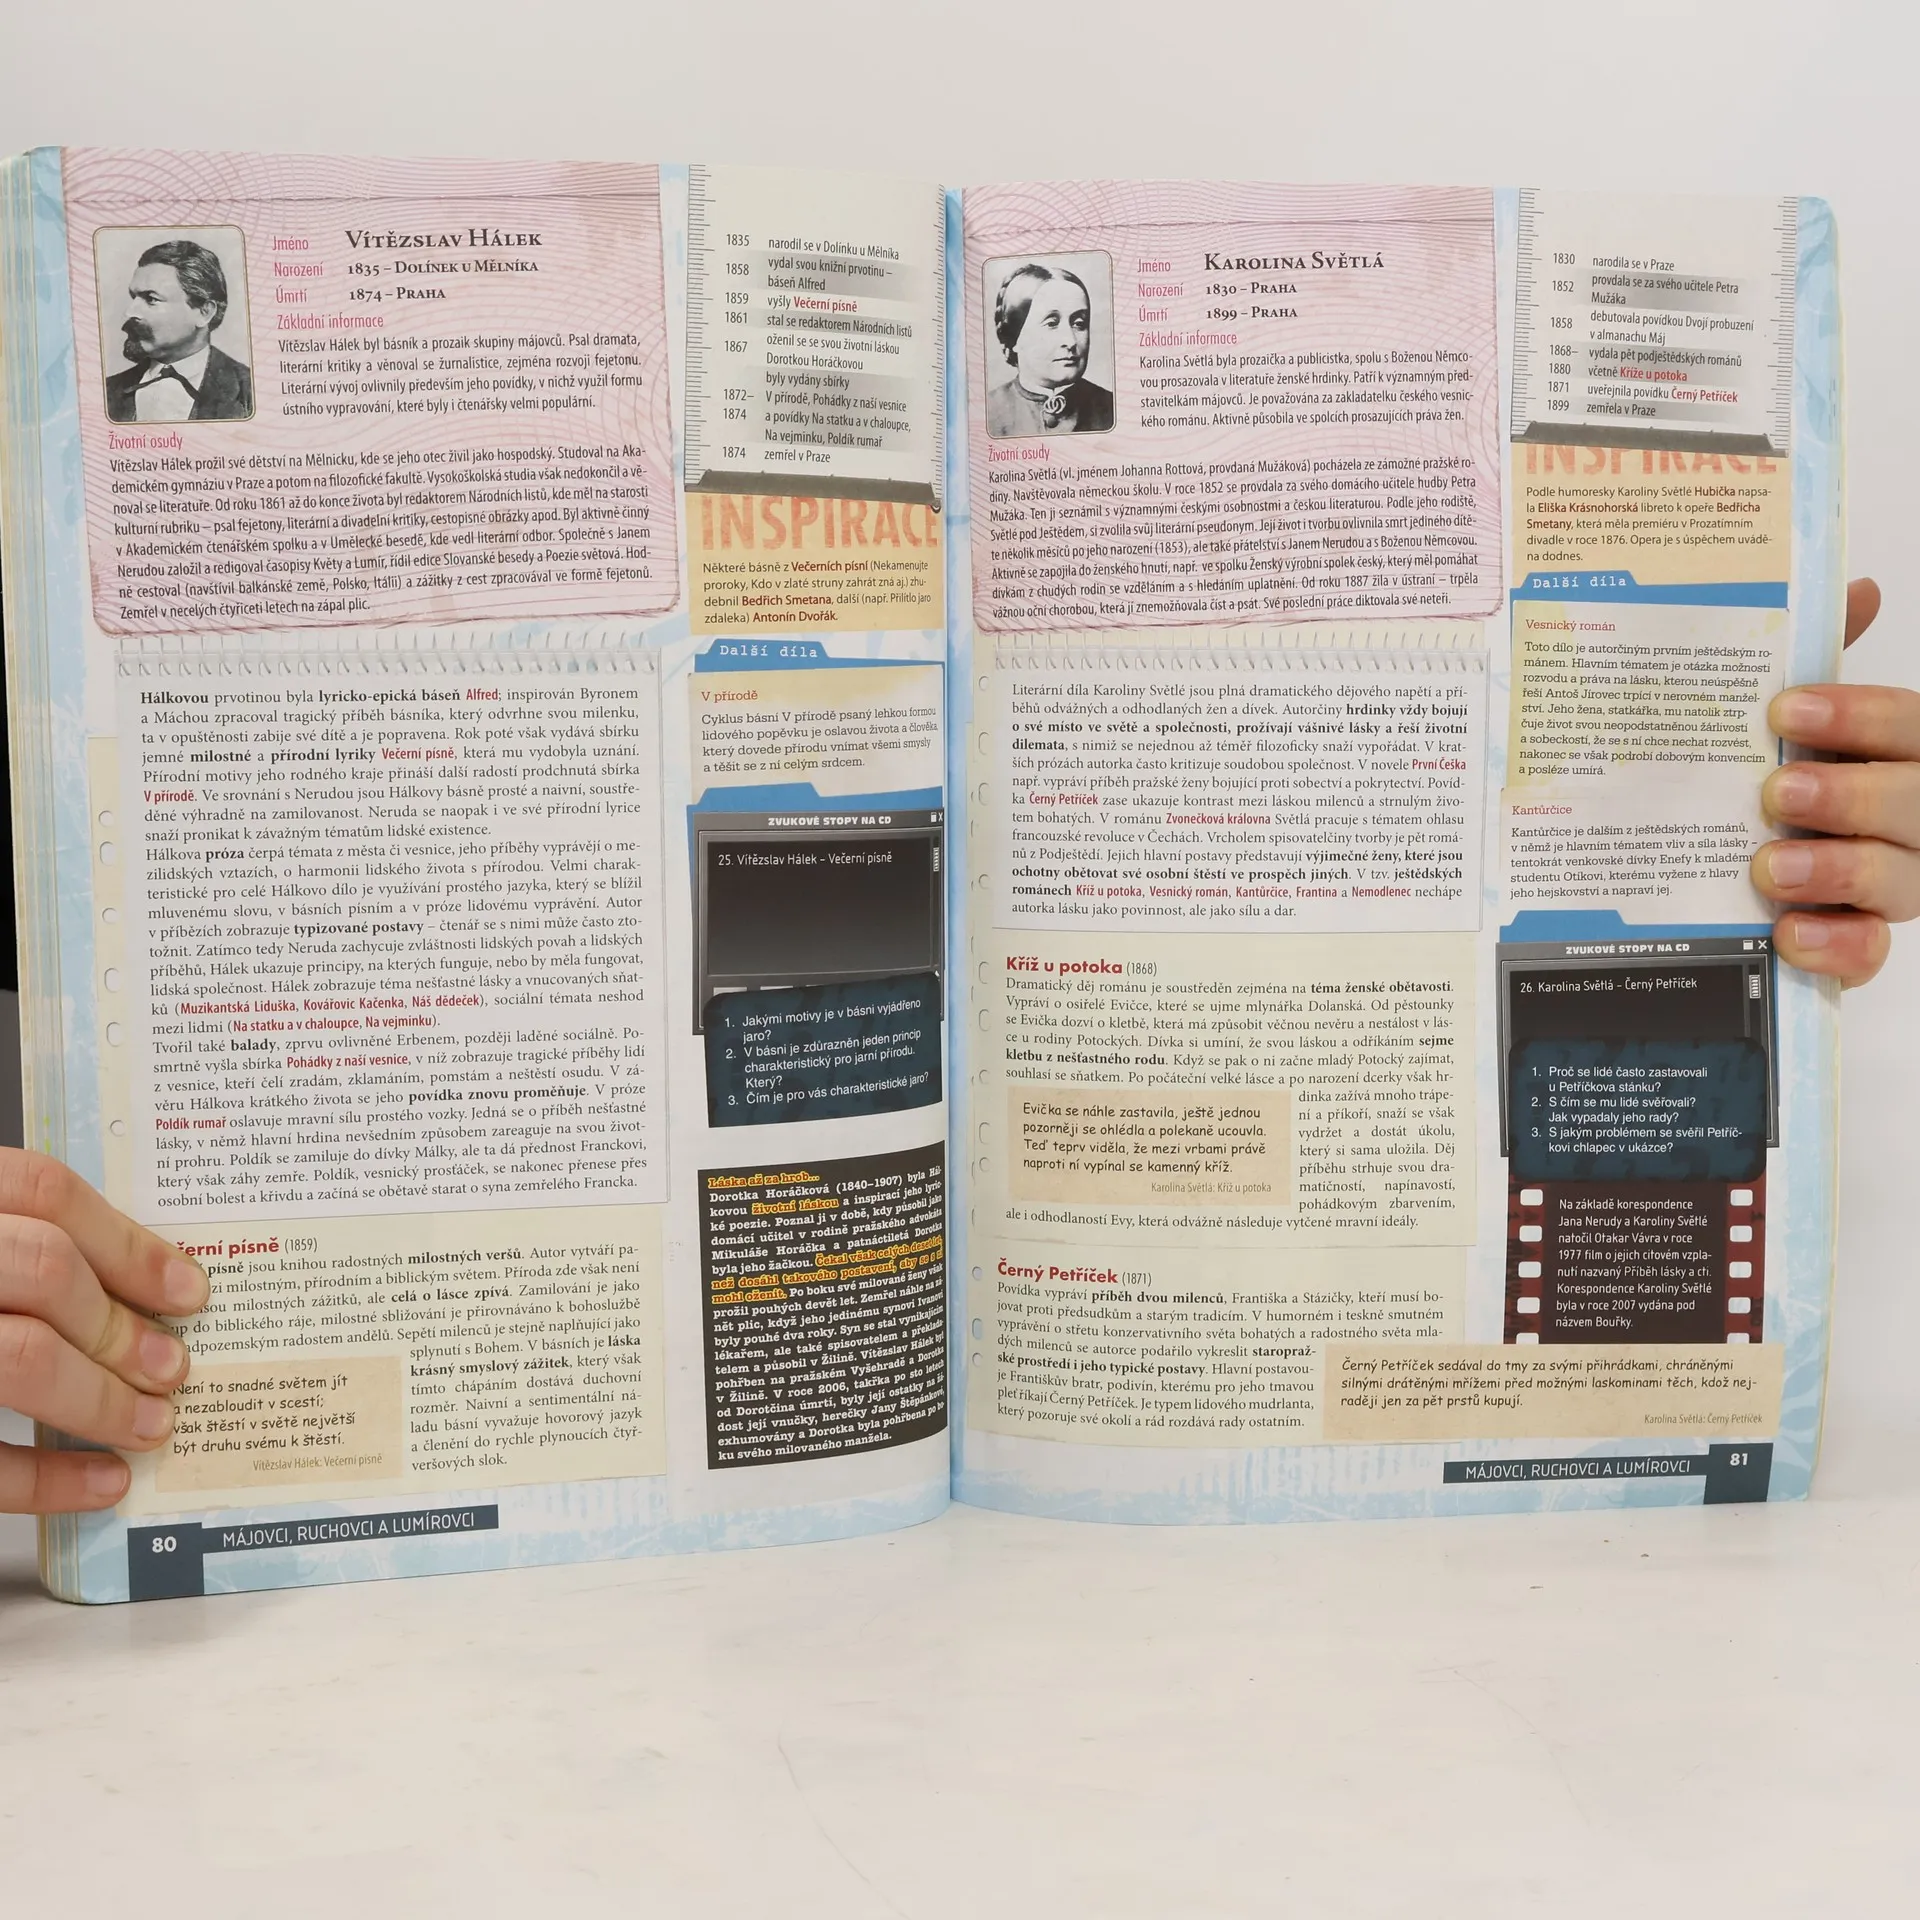 Jméno VÍTĚZSLAV HÁLEK
Narození 1835 – DOLÍNEK U MĚLNÍKA
Úmrtí 1874 – PRAHA
Základní informace
Vítězslav Hálek byl básník a prozaik skupiny májovců. Psal dramata,
literární kritiky a věnoval se žurnalistice, zejména rozvoji fejetonu.
Literární vývoj ovlivnily především jeho povídky, v nichž využil formu
ústního vypravování, které byly i čtenářsky velmi populární.
Životní osudy
Vítězslav Hálek prožil své dětství na Mělnicku, kde se jeho otec živil jako hospodský. Studoval na Aka-
demickém gymnáziu v Praze a potom na filozofické fakultě. Vysokoškolská studia však nedokončil a vě-
noval se literatuře. Od roku 1861 až do konce života byl redaktorem Národních listů, kde měl na starosti
kulturní rubriku – psal fejetony, literární a divadelní kritiky, cestopisné obrázky apod. Byl aktivně činný
v Akademickém čtenářském spolku a v Umělecké besedě, kde vedl literární odbor. Společně s Janem
Nerudou založil a redigoval časopisy Květy a Lumír, řídil edice Slovanské besedy a Poezie světová. Hod-
ně cestoval (navštívil balkánské země, Polsko, Itálii) a zážitky z cest zpracovával ve formě fejetonů.
Zemřel v necelých čtyřiceti letech na zápal plic.
Hálkovou prvotinou byla lyricko-epická báseň Alfred; inspirován Byronem
a Máchou zpracoval tragický příběh básníka, který odvrhne svou milenku,
ta v opuštěnosti zabije své dítě a je popravena. Rok poté však vydává sbírku
jemné milostné a přírodní lyriky Večerní písně, která mu vydobyla uznání.
Přírodní motivy jeho rodného kraje přináší další radostí prodchnutá sbírka
V přírodě. Ve srovnání s Nerudou jsou Hálkovy básně prosté a naivní, soustře-
děné výhradně na zamilovanost. Neruda se naopak i ve své přírodní lyrice
snaží pronikat k závažným tématům lidské existence.
Hálkova próza čerpá témata z města či vesnice, jeho příběhy vyprávějí o me-
zilidských vztazích, o harmonii lidského života s přírodou. Velmi charak-
teristické pro celé Hálkovo dílo je využívání prostého jazyka, který se blížil
mluvenému slovu, v básních písním a v próze lidovému vyprávění. Autor
v příbězích zobrazuje typizované postavy – čtenář se s nimi může často zto-
tožnit. Zatímco tedy Neruda zachycuje zvláštnosti lidských povah a lidských
příběhů, Hálek ukazuje principy, na kterých funguje, nebo by měla fungovat,
lidská společnost. Hálek zobrazuje téma nešťastné lásky a vnucovaných sňat-
ků (Muzikantská Liduška, Kovářovic Kačenka, Náš dědeček), sociální témata neshod
mezi lidmi (Na statku a v chaloupce, Na vejminku).
Tvořil také balady, zprvu ovlivněné Erbenem, později laděné sociálně. Po-
smrtně vyšla sbírka Pohádky z naší vesnice, v níž zobrazuje tragické příběhy lidí
z vesnice, kteří čelí zradám, zklamáním, pomstám a neštěstí osudu. V zá-
věru Hálkova krátkého života se jeho povídka znovu proměňuje. V próze
Poldík rumař oslavuje mravní sílu prostého vozky. Jedná se o příběh nešťastné
lásky, v němž hlavní hrdina nevšedním způsobem zareaguje na svou život-
ní prohru. Poldík se zamiluje do dívky Málky, ale ta dá přednost Franckovi,
který však záhy zemře. Poldík, vesnický prosťáček, se nakonec přenese přes
osobní bolest a křivdu a začíná se obětavě starat o syna zemřelého Francka.
erní písně (1859)
písně jsou knihou radostných milostných veršů. Autor vytváří pa-
zi milostným, přírodním a biblickým světem. Příroda zde však není
sou milostných zážitků, ale celá o lásce zpívá. Zamilování je jako
up do biblického ráje, milostné sbližování je přirovnáváno k bohoslužbě
adpozemským radostem andělů. Sepětí milenců je stejně naplňující jako
splynutí s Bohem. V básních je láska
krásný smyslový zážitek, který však
tímto chápáním dostává duchovní
rozměr. Naivní a sentimentální ná-
ladu básní vyvažuje hovorový jazyk
a členění do rychle plynoucích čtyř-
veršových slok.
Není to snadné světem jít
a nezabloudit v scestí;
však štěstí v světě největší
být druhu svému k štěstí.
Vítězslav Hálek: Večerní písně
80 MÁJOVCI, RUCHOVCI A LUMÍROVCI
1835 narodil se v Dolínku u Mělníka
1858 vydal svou knižní prvotinu –
báseň Alfred
1859 vyšly Večerní písně
1861 stal se redaktorem Národních listů
1867 oženil se se svou životní láskou
Dorotkou Horáčkovou
byly vydány sbírky
1872– V přírodě, Pohádky z naší vesnice
1874 a povídky Na statku a v chaloupce,
Na vejminku, Poldík rumař
1874 zemřel v Praze
INSPIRACE
Některé básně z Večerních písní (Nekamenujte
proroky, Kdo v zlaté struny zahrát zná aj.) zhu-
debnil Bedřich Smetana, další (např. Přilítlo jaro
zdaleka) Antonín Dvořák.
Další díla
V přírodě
Cyklus básní V přírodě psaný lehkou formou
lidového popěvku je oslavou života a člověka,
který dovede přírodu vnímat všemi smysly
a těšit se z ní celým srdcem.
ZVUKOVÉ STOPY NA CD
25. Vítězslav Hálek – Večerní písně
1. Jakými motivy je v básni vyjádřeno
jaro?
2. V básni je zdůrazněn jeden princip
charakteristický pro jarní přírodu.
Který?
3. Čím je pro vás charakteristické jaro?
Láska až za hrob...
Dorotka Horáčková (1840–1907) byla Hál-
kovou životní láskou a inspirací jeho lyric-
ké poezie. Poznal ji v době, kdy působil jako
domácí učitel v rodině pražského advokáta
Mikuláše Horáčka a patnáctiletá Dorotka
byla jeho žačkou. Čekal však celých deset let,
než dosáhl takového postavení, aby se s ní
mohl oženit. Po boku své milované ženy však
prožil pouhých devět let. Zemřel náhle na zá-
nět plic, když jeho jedinému synovi Ivanovi
byly pouhé dva roky. Syn se stal vynikajícím
lékařem, ale také spisovatelem a překlada-
telem a působil v Žilině. Vítězslav Hálek byl
pohřben na pražském Vyšehradě a Dorotka
v Žilině. V roce 2006, takřka po sto letech
od Dorotčina úmrtí, byly její ostatky na žá-
dost její vnučky, herečky Jany Štěpánkové,
exhumovány a Dorotka byla pohřbena po bo-
ku svého milovaného manžela.
Jméno KAROLINA SVĚTLÁ
Narození 1830 – PRAHA
Úmrtí 1899 – PRAHA
Základní informace
Karolina Světlá byla prozaička a publicistka, spolu s Boženou Němco-
vou prosazovala v literatuře ženské hrdinky. Patří k významným před-
stavitelkám májovců. Je považována za zakladatelku českého vesnic-
kého románu. Aktivně působila ve spolcích prosazujících práva žen.
Životní osudy
Karolina Světlá (vl. jménem Johanna Rottová, provdaná Mužáková) pocházela ze zámožné pražské ro-
diny. Navštěvovala německou školu. V roce 1852 se provdala za svého domácího učitele hudby Petra
Mužáka. Ten ji seznámil s významnými českými osobnostmi a českou literaturou. Podle jeho rodiště,
Světlé pod Ještědem, si zvolila svůj literární pseudonym. Její život i tvorbu ovlivnila smrt jediného dítě-
te několik měsíců po jeho narození (1853), ale také přátelství s Janem Nerudou a s Boženou Němcovou.
Aktivně se zapojila do ženského hnutí, např. ve spolku Ženský výrobní spolek český, který měl pomáhat
dívkám z chudých rodin se vzděláním a s hledáním uplatnění. Od roku 1887 žila v ústraní – trpěla
vážnou oční chorobou, která jí znemožňovala číst a psát. Své poslední práce diktovala své neteři.
Literární díla Karoliny Světlé jsou plná dramatického dějového napětí a pří-
běhů odvážných a odhodlaných žen a dívek. Autorčiny hrdinky vždy bojují
o své místo ve světě a společnosti, prožívají vášnivé lásky a řeší životní
dilemata, s nimiž se nejednou až téměř filozoficky snaží vypořádat. V krat-
ších prózách autorka často kritizuje soudobou společnost. V novele První Češka
např. vypráví příběh pražské ženy bojující proti sobectví a pokrytectví. Povíd-
ka Černý Petříček zase ukazuje kontrast mezi láskou milenců a strnulým živo-
tem bohatých. V románu Zvonečková královna Světlá pracuje s tématem ohlasu
francouzské revoluce v Čechách. Vrcholem spisovatelčiny tvorby je pět romá-
nů z Podještědí. Jejich hlavní postavy představují výjimečné ženy, které jsou
ochotny obětovat své osobní štěstí ve prospěch jiných. V tzv. ještědských
románech Kříž u potoka, Vesnický román, Kantůrčice, Frantina a Nemodlenec nechápe
autorka lásku jako povinnost, ale jako sílu a dar.
Kříž u potoka (1868)
Dramatický děj románu je soustředěn zejména na téma ženské obětavosti.
Vypráví o osiřelé Evičce, které se ujme mlynářka Dolanská. Od pěstounky
se Evička dozví o kletbě, která má způsobit věčnou nevěru a nestálost v lás-
ce u rodiny Potockých. Dívka si umíní, že svou láskou a odříkáním sejme
kletbu z nešťastného rodu. Když se pak o ni začne mladý Potocký zajímat,
souhlasí se sňatkem. Po počáteční velké lásce a po narození dcerky však hr-
dinka zažívá mnoho trápe-
ní a příkoří, snaží se však
vydržet a dostát úkolu,
který si sama uložila. Děj
příběhu strhuje svou dra-
matičností, napínavostí,
pohádkovým zbarvením,
ale i odhodlaností Evy, která odvážně následuje vytčené mravní ideály.
Evička se náhle zastavila, ještě jednou
pozorněji se ohlédla a polekaně ucouvla.
Teď teprv viděla, že mezi vrbami právě
naproti ní vypínal se kamenný kříž.
Karolina Světlá: Kříž u potoka
Černý Petříček (1871)
Povídka vypráví příběh dvou milenců, Františka a Stázičky, kteří musí bo-
jovat proti předsudkům a starým tradicím. V humorném i teskně smutném
vyprávění o střetu konzervativního světa bohatých a radostného světa mla-
dých milenců se autorce podařilo vykreslit staropraž-
ské prostředí i jeho typické postavy. Hlavní postavou
je Františkův bratr, podivín, kterému pro jeho tmavou
pleť říkají Černý Petříček. Je typem lidového mudrlanta,
který pozoruje své okolí a rád rozdává rady ostatním.
Černý Petříček sedával do tmy za svými přihrádkami, chráněnými
silnými drátěnými mřížemi před možnými laskominami těch, kdož nej-
raději jen za pět prstů kupují.
Karolina Světlá: Černý Petříček
1830 narodila se v Praze
1852 provdala se za svého učitele Petra
Mužáka
1858 debutovala povídkou Dvojí probuzení
v almanachu Máj
1868– vydala pět podještědských románů
1880 včetně Kříže u potoka
1871 uveřejnila povídku Černý Petříček
1899 zemřela v Praze
INSPIRACE
Podle humoresky Karoliny Světlé Hubička napsa-
la Eliška Krásnohorská libreto k opeře Bedřicha
Smetany, která měla premiéru v Prozatímním
divadle v roce 1876. Opera je s úspěchem uvádě-
na dodnes.
Další díla
Vesnický román
Toto dílo je autorčiným prvním ještědským ro-
mánem. Hlavním tématem je otázka možnosti
rozvodu a práva na lásku, kterou neúspěšně
řeší Antoš Jírovec trpící v nerovném manžel-
ství. Jeho žena, statkářka, mu natolik ztrp-
čuje život svou neopodstatněnou žárlivostí
a sobeckostí, že se s ní chce nechat rozvést,
nakonec se však podrobí dobovým konvencím
a posléze umírá.
Kantůrčice
Kantůrčice je dalším z ještědských románů,
v němž je hlavním tématem vliv a síla lásky –
tentokrát venkovské dívky Enefy k mladému
studentu Otíkovi, kterému vyžene z hlavy
jeho hejskovství a napraví jej.
ZVUKOVÉ STOPY NA CD
26. Karolina Světlá – Černý Petříček
1. Proč se lidé často zastavovali
u Petříčkova stánku?
2. S čím se mu lidé svěřovali?
Jak vypadaly jeho rady?
3. S jakým problémem se svěřil Petříč-
kovi chlapec v ukázce?
Na základě korespondence
Jana Nerudy a Karoliny Světlé
natočil Otakar Vávra v roce
1977 film o jejich citovém vzpla-
nutí nazvaný Příběh lásky a cti.
Korespondence Karoliny Světlé
byla v roce 2007 vydána pod
názvem Bouřky.
MÁJOVCI, RUCHOVCI A LUMÍROVCI 81